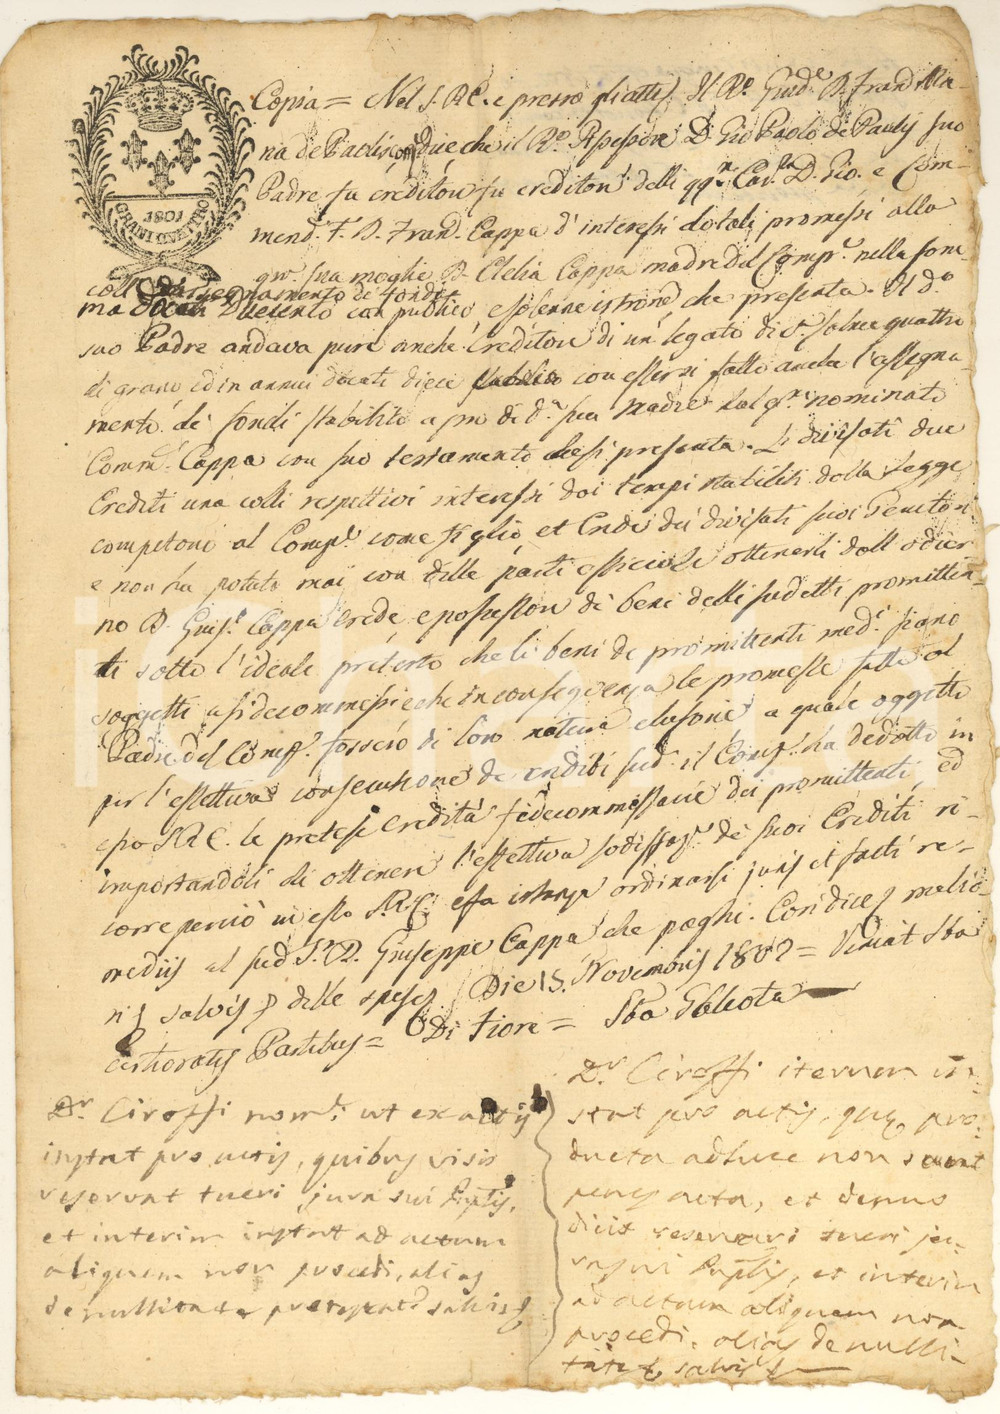 1801
GRANO UNO E MEZZO
Copia = Nel S. R. C. e presso gli atti Il R.º Giud.e D. Fran.
na de Paolis dice, che il R.º Assessore D. Gio Paolo de Paulis suo
Padre fu creditore fu creditore delli qq.m Cav.r D. Gio. e Com-
mend. F. D. Frand. Cappa d'interessi dotali promessi alla
qm sua moglie D. Clelia Cappa madre del Comp.e nella som
coll' assegnamento di fondi
ma Docati Duecento con publico e solenne istrom.º che presenta. Il d.º
suo Padre andava pure anche Creditore di un legato di salme quattro
di grano ed in annui docati dieci con essersi fatto anche l'assegna
mento di fondi stabili a pro di d.a sua Madre dal q.m nominato
Comm. Cappa con suo testamento che si presenta. Li divisati due
Crediti una colli respettivi interessi dai tempi stabiliti dalla legge
competono al Comp.e come figlio, et Erede dei divisati suoi Genitori
e non ha potuto mai con dette parti officiose ottenerli dall' odier
no D. Gius.e Cappa Erede, e possessore de beni delli sudetti promitten
ti sotto l'ideale pretesto che li beni de promittenti med.i siano
soggetti a fidecommissi e che in conseguenza le promesse fatte al
Padre del Comp.e fossero di loro natura elusorie a quale oggetto
per l'effettiva consecuzione de crediti sud.i il Comp.e ha dedotto in
esso S.R.C. le pretese eredità fidecommessarie dei promittenti, ed
importandoli di ottenere l'effettiva sodisfaz.e de suoi Crediti ri-
corre perciò in esso S.R.C. e fa istanza ordinarsi juris et facti re-
mediis al sud. S.r D. Giuseppe Cappa che paghi. Così dice meliori
ri salvis delle spese Die 15. Novembris 1802 = Vidiat Sba
certioratis Partibus = Di Fiore = Sba
D.r Ciroffi nom.e ut ex actis
instat pro actis, quibus visis
reservat tueri jura sui Pnplis,
et interim instat ad actum
aliquem non procedi, alias
de nullitate protestat.r salvis
D.r Ciroffi iterum in-
stat pro actis, quæ pro-
ducta adhuc non sunt
penes acta, et denuo
dicit reservari tueri ju-
ra sui Pnplis, et interim
ad actum aliquem non
procedi, alias de nulli-
tate salvis